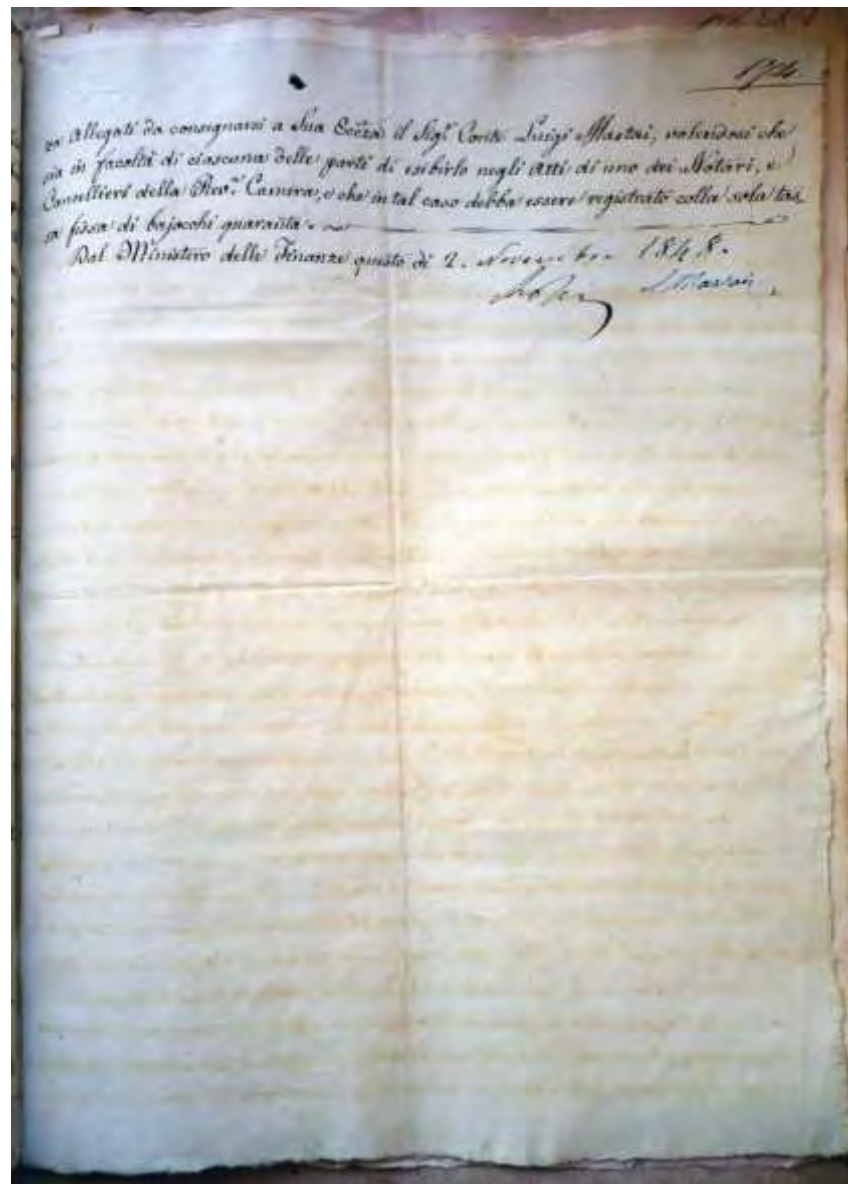 za Allegati da consegnarsi a Sua Ecc̃za il Sigr. Conte Luigi Mastai, volendosi che
sia in facoltà di ciascuna delle parti di esibirlo negli Atti di uno dei Notari, e
Cancellieri della Revda. Camera, e che in tal caso debba essere registrato colla sola tas
sa fissa di bajocchi quaranta.
Dal Ministero delle Finanze questo dì 2. Novembre 1848.
L Mastai